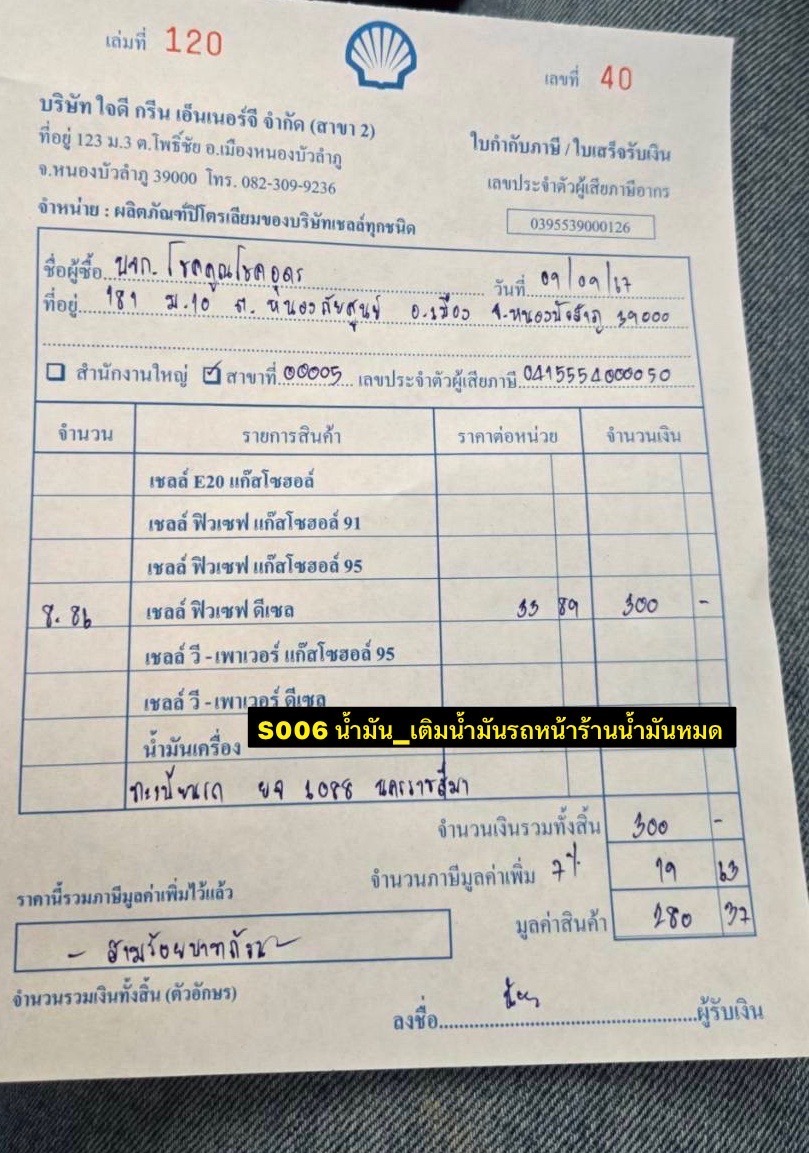 เล่มที่ 120
เลขที่ 40
บริษัท ใจดี กรีน เอ็นเนอร์จี จำกัด (สาขา 2)
ที่อยู่ 123 ม.3 ต.โพธิ์ชัย อ.เมืองหนองบัวลำภู
จ.หนองบัวลำภู 39000 โทร. 082-309-9236
จำหน่าย : ผลิตภัณฑ์ปิโตรเลียมของบริษัทเชลล์ทุกชนิด
ใบกำกับภาษี / ใบเสร็จรับเงิน
เลขประจำตัวผู้เสียภาษีอากร
0395539000126
ชื่อผู้ซื้อ บจก. โชคคูณโชคอุดร วันที่ 09/09/67
ที่อยู่ 181 ม.10 ต. หนองภัยศูนย์ อ.เมือง จ.หนองบัวลำภู 39000
สำนักงานใหญ่ สาขาที่ 00005 เลขประจำตัวผู้เสียภาษี 0415554000050
จำนวน รายการสินค้า ราคาต่อหน่วย จำนวนเงิน
เชลล์ E20 แก๊สโซฮอล์
เชลล์ ฟิวเซฟ แก๊สโซฮอล์ 91
เชลล์ ฟิวเซฟ แก๊สโซฮอล์ 95
8.86 เชลล์ ฟิวเซฟ ดีเซล 33 89 300 -
เชลล์ วี - เพาเวอร์ แก๊สโซฮอล์ 95
เชลล์ วี - เพาเวอร์ ดีเซล
S006 น้ำมัน_เติมน้ำมันรถหน้าร้านน้ำมันหมด
น้ำมันเครื่อง
ทะเบียนรถ 1088 นครราชสีมา
จำนวนเงินรวมทั้งสิ้น 300 -
จำนวนภาษีมูลค่าเพิ่ม 7% 19 63
ราคานี้รวมภาษีมูลค่าเพิ่มไว้แล้ว
มูลค่าสินค้า 280 37
- สามร้อยบาทถ้วน -
จำนวนรวมเงินทั้งสิ้น (ตัวอักษร)
ลงชื่อ ผู้รับเงิน